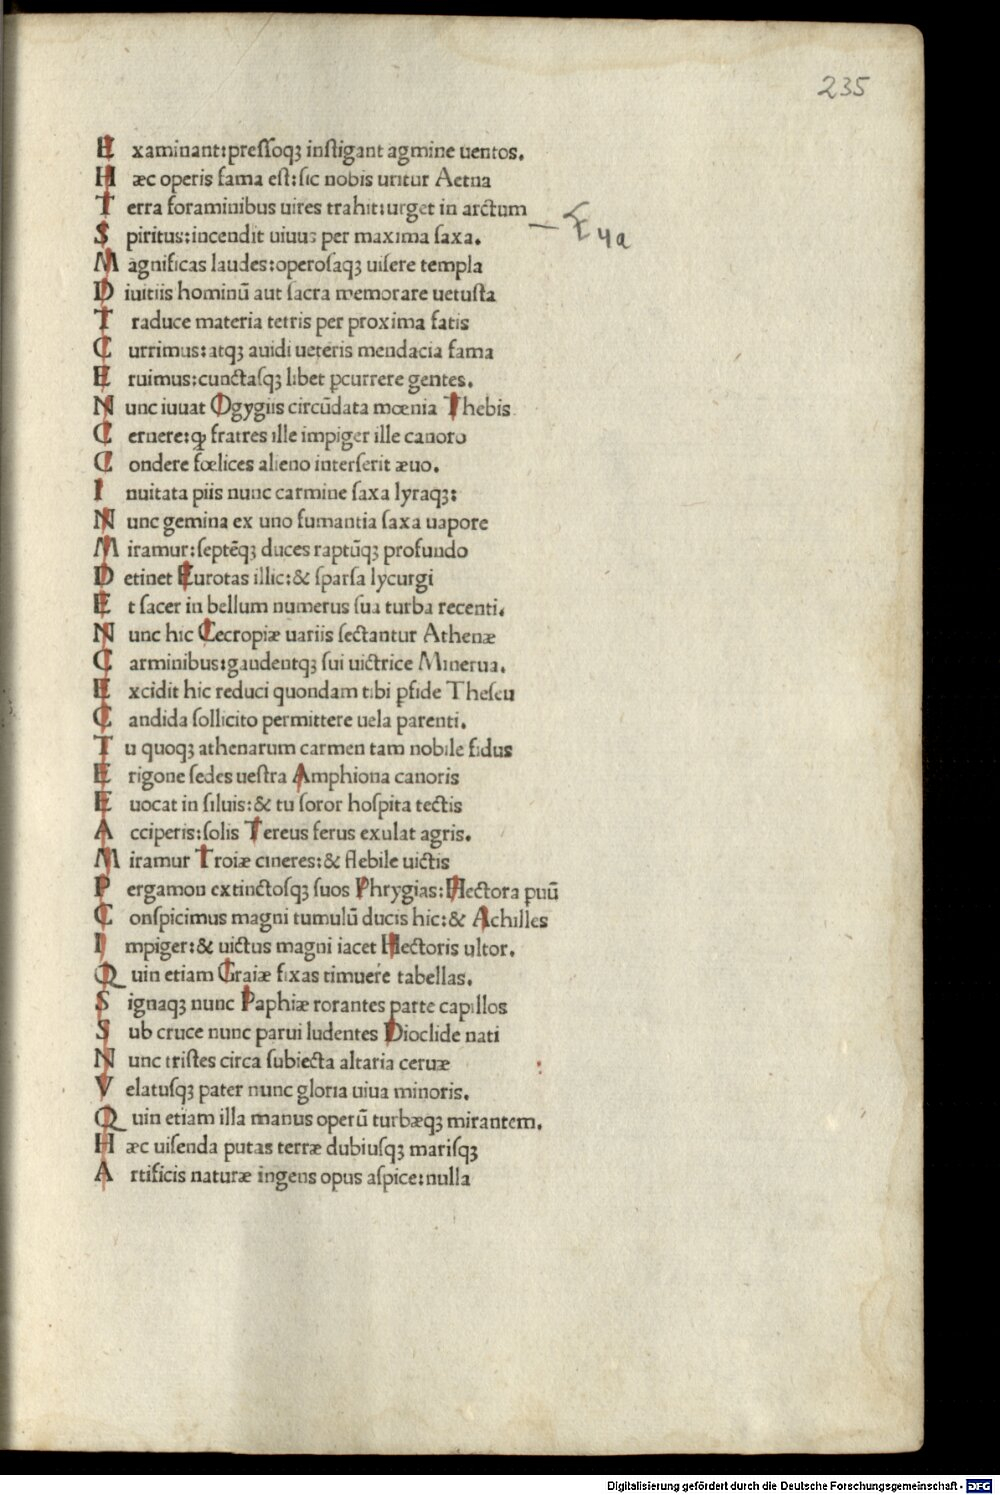 235
Examinant:pressoqꝫ instigant agmine uentos.
Hæc operis fama est:sic nobis uritur Aetna
Terra foraminibus uires trahit:urget in arctum
Spiritus:incendit uiuus per maxima saxa.
Magnificas laudes:operosaqꝫ uisere templa
Diuitiis hominū aut sacra memorare uetusta
Traduce materia tetris per proxima fatis
Currimus:atqꝫ auidi ueteris mendacia fama
Eruimus:cunctasqꝫ libet ꝑcurrere gentes.
Nunc iuuat Ogygiis circūdata mœnia Thebis
Cernere:ꝙ fratres ille impiger ille canoro
Condere fœlices alieno interserit æuo.
Inuitata piis nunc carmine saxa lyraqꝫ:
Nunc gemina ex uno fumantia saxa uapore
Miramur:septēqꝫ duces raptūqꝫ profundo
Detinet Eurotas illic:& sparsa lycurgi
Et sacer in bellum numerus sua turba recenti.
Nunc hic Cecropiæ uariis sectantur Athenæ
Carminibus:gaudentqꝫ sui uictrice Minerua.
Excidit hic reduci quondam tibi ꝑfide Theseu
Candida sollicito permittere uela parenti.
Tu quoqꝫ athenarum carmen tam nobile fidus
Erigone sedes uestra Amphiona canoris
Euocat in siluis:& tu soror hospita tectis
Acciperis:solis Tereus ferus exulat agris.
Miramur Troiæ cineres:& flebile uictis
Pergamon extinctosqꝫ suos Phrygias:Hectora puū
Conspicimus magni tumulū ducis hic:& Achilles
Impiger:& uictus magni iacet Hectoris ultor.
Quin etiam Graiæ fixas timuere tabellas.
Signaqꝫ nunc Paphiæ rorantes parte capillos
Sub cruce nunc parui ludentes Dioclide nati
Nunc tristes circa subiecta altaria ceruæ
Velatusqꝫ pater nunc gloria uiua minoris.
Quin etiam illa manus operū turbæqꝫ mirantem.
Hæc uisenda putas terræ dubiusqꝫ marisqꝫ
Artificis naturæ ingens opus aspice:nulla
Digitalisierung gefördert durch die Deutsche Forschungsgemeinschaft - DFG